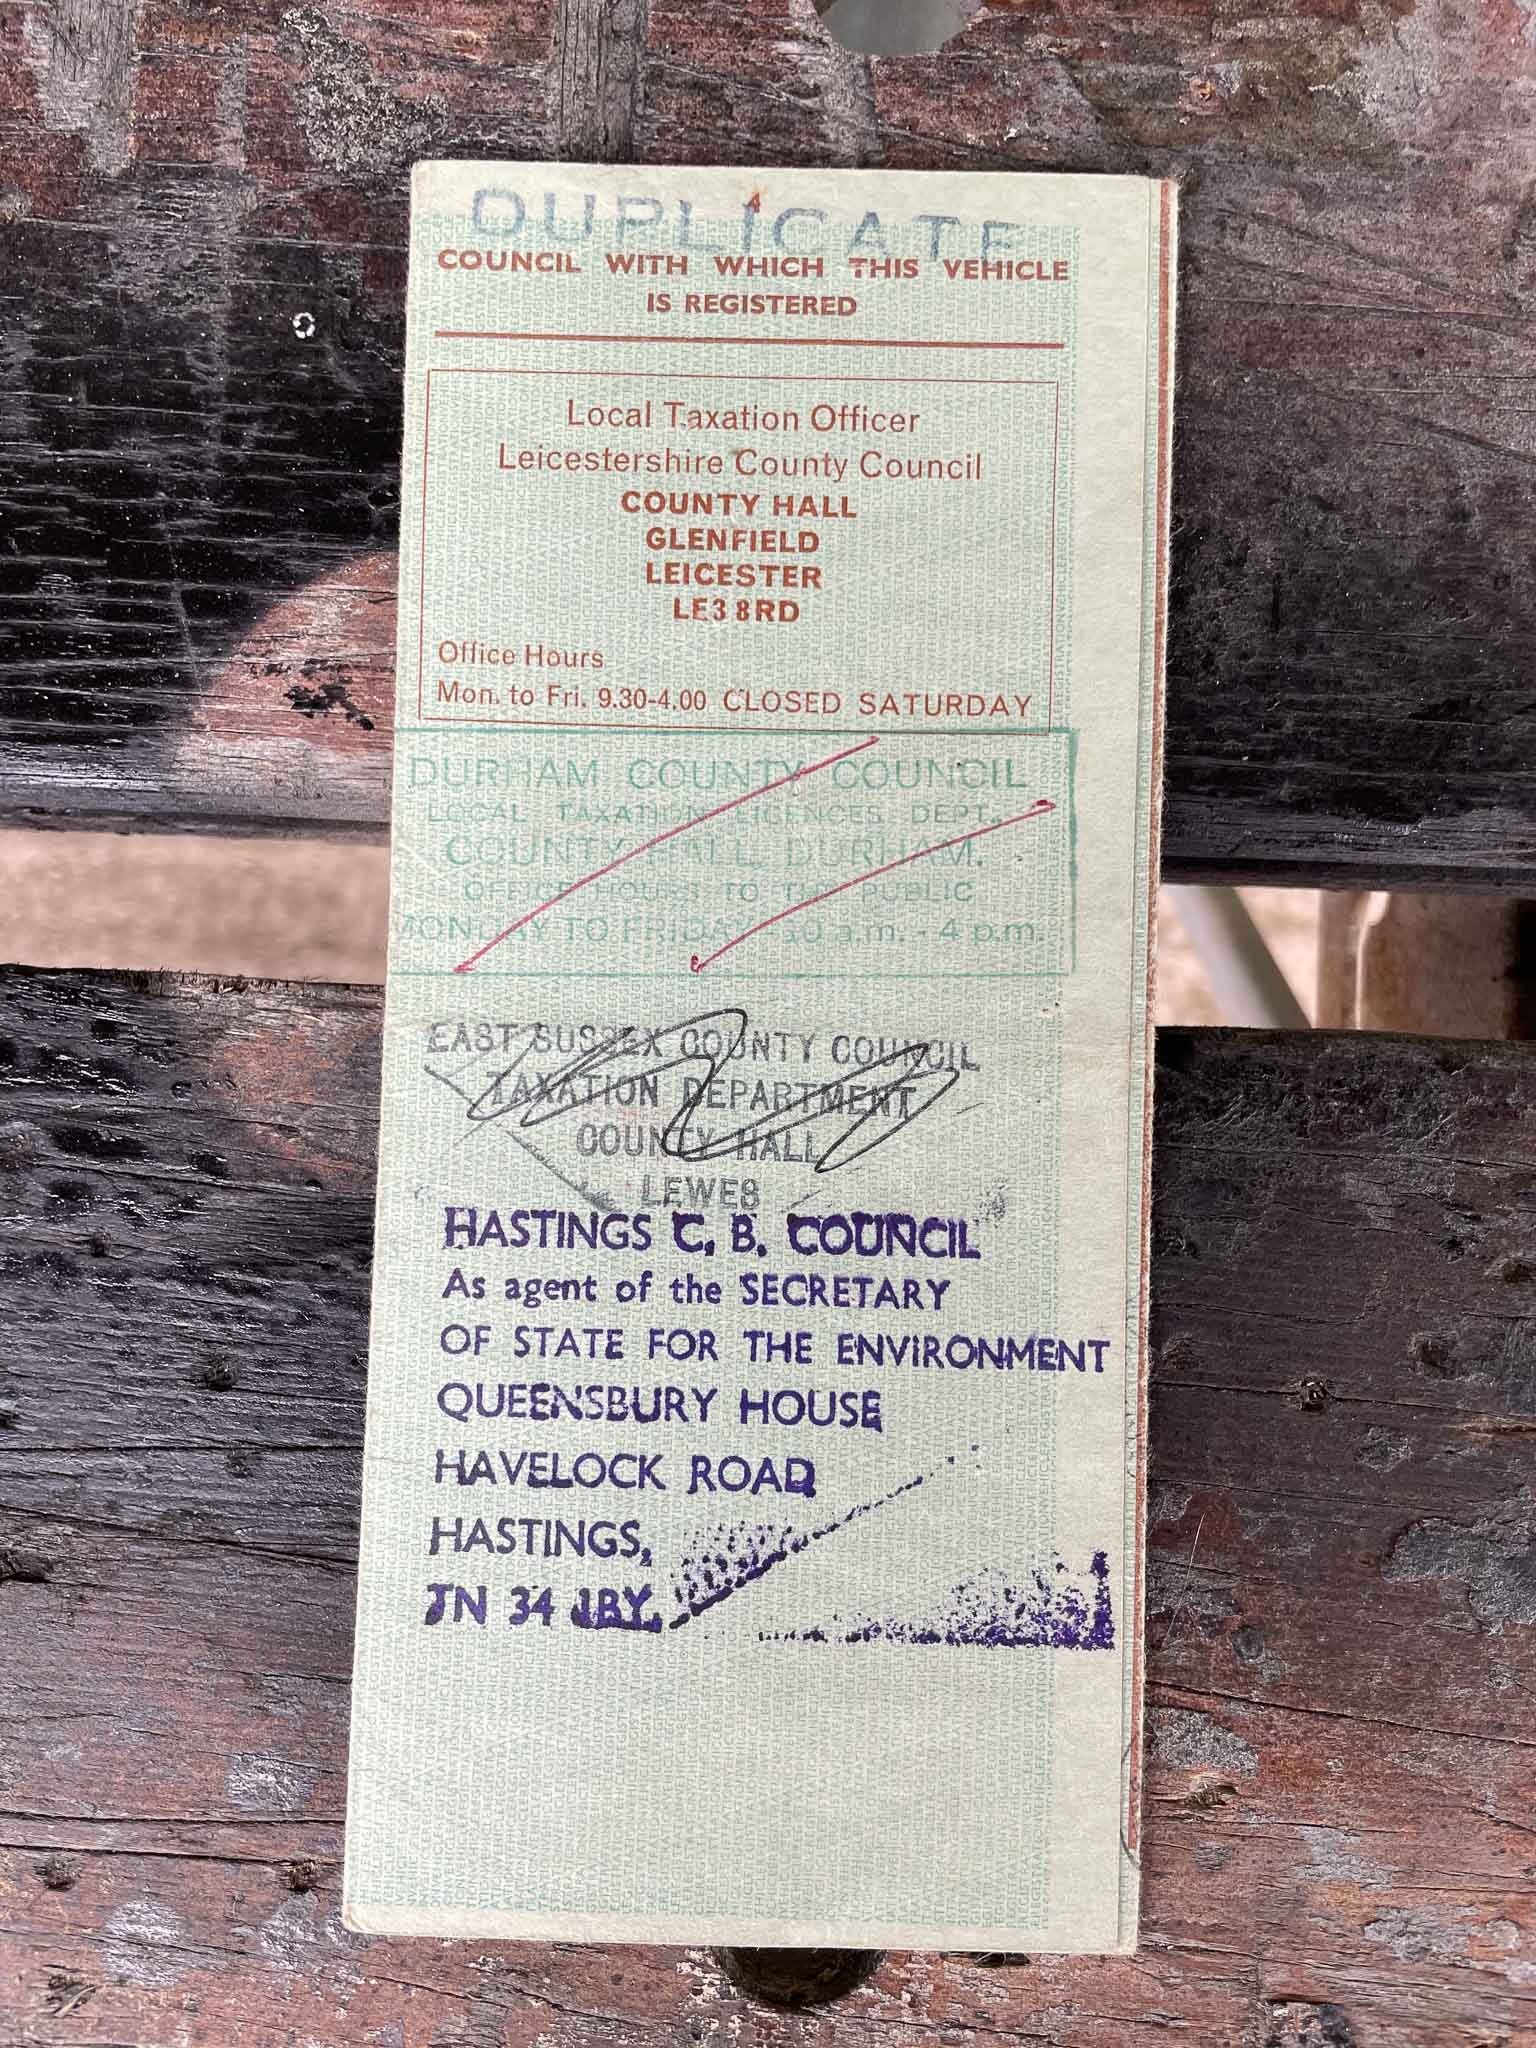 DUPLICATE
COUNCIL WITH WHICH THIS VEHICLE
IS REGISTERED
Local Taxation Officer
Leicestershire County Council
COUNTY HALL
GLENFIELD
LEICESTER
LE3 8RD
Office Hours
Mon. to Fri. 9.30-4.00 CLOSED SATURDAY
DURHAM COUNTY COUNCIL
LOCAL TAXATION LICENCES DEPT.
COUNTY HALL, DURHAM.
OFFICE HOURS TO THE PUBLIC
MONDAY TO FRIDAY - 10 a.m. - 4 p.m.
EAST SUSSEX COUNTY COUNCIL
TAXATION DEPARTMENT
COUNTY HALL
LEWES
HASTINGS C. B. COUNCIL
As agent of the SECRETARY
OF STATE FOR THE ENVIRONMENT
QUEENSBURY HOUSE
HAVELOCK ROAD
HASTINGS,
TN 34 1BY.